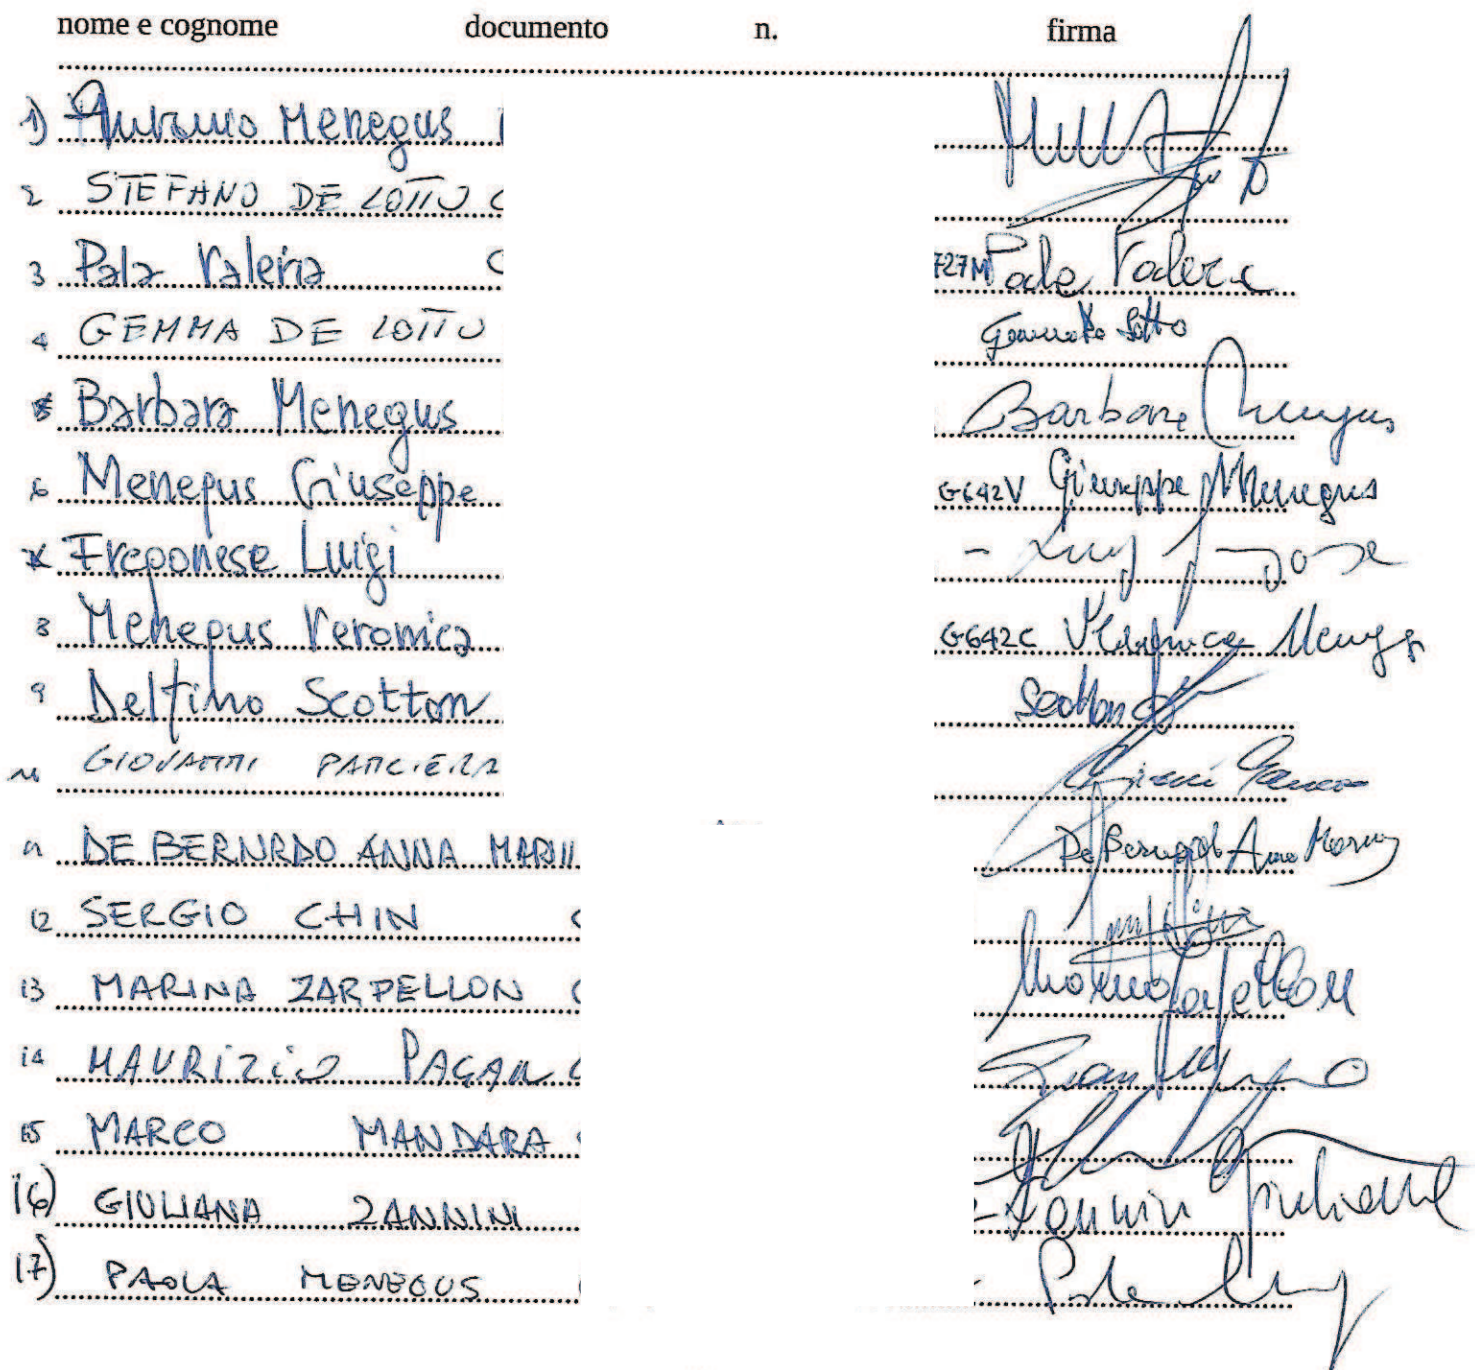 nome e cognome documento n. firma
1) Antonio Menegus
2 STEFANO DE LOTTO C
3 Pala Valeria C 727M Pala Valeria
4 GEMMA DE LOTTO Gemma De Lotto
5 Barbara Menegus Barbara Menegus
6 Menegus Giuseppe G642V Giuseppe Menegus
7 Fregonese Luigi -
8 Menegus Veronica G642C Veronica Menegus
9 Delfino Scotton Scotton
10 GIOVANNI PANCIERA
11 DE BERNARDO ANNA MARIA De Bernardo Anna Maria
12 SERGIO CHIN
13 MARINA ZARPELLON Marina Zarpellon
14 MAURIZIO PAGAN
15 MARCO MANDARA
16) GIULIANA ZANNINI Zannini Giuliana
17) PAOLA MENEGUS